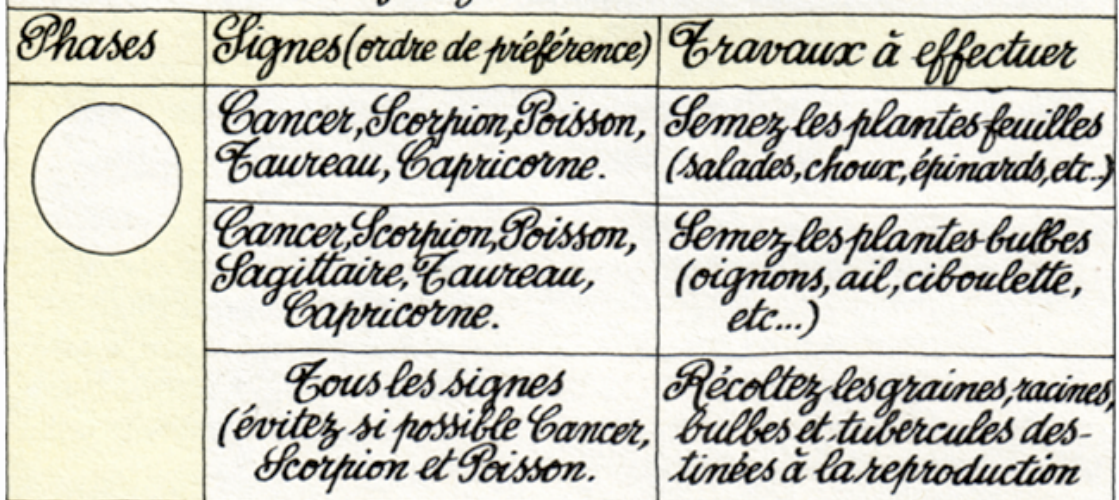 Phases
Signes (ordre de préférence)
Travaux à effectuer
Cancer, Scorpion, Poisson,
Taureau, Capricorne.
Semez les plantes feuilles
(salades, choux, épinards, etc..)
Cancer, Scorpion, Poisson,
Sagittaire, Taureau,
Capricorne.
Semez les plantes bulbes
(oignons, ail, ciboulette,
etc...)
Tous les signes
(évitez si possible Cancer,
Scorpion et Poisson.
Récoltez les graines, racines,
bulbes et tubercules des-
tinées à la reproduction